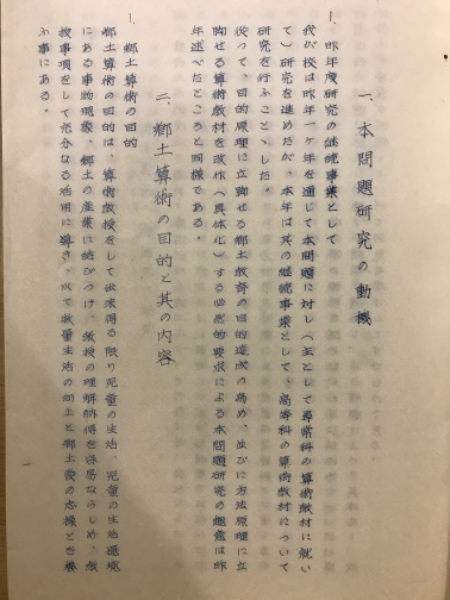 一、本問題研究の動機
1. 昨年度研究の継続事業として
我が校は昨年一ヶ年を通じて本問題に対し(主として尋常科の算術教材に就い
て)研究を進めたが、本年は其の継続事業として、高等科の算術教材について
研究を行ふことゝした。
従って、目的原理に立脚せる郷土教育の目的達成の為め、並びに方法原理に立
脚せる算術教材を改作(具体化)する必然的要求による本問題研究の趣意は昨
年述べたところと同様である。
二、郷土算術の目的と其の内容
1. 郷土算術の目的
郷土算術の目的は、算術教授をして出来得る限り児童の生活、児童の生活環境
にある事物現象、郷土の産業に結びつけ、教授の理解納得を容易ならしめ、教
授事項をして充分なる活用に導き、以て数量生活の向上と郷土愛の志操とを養
ふ事にある。